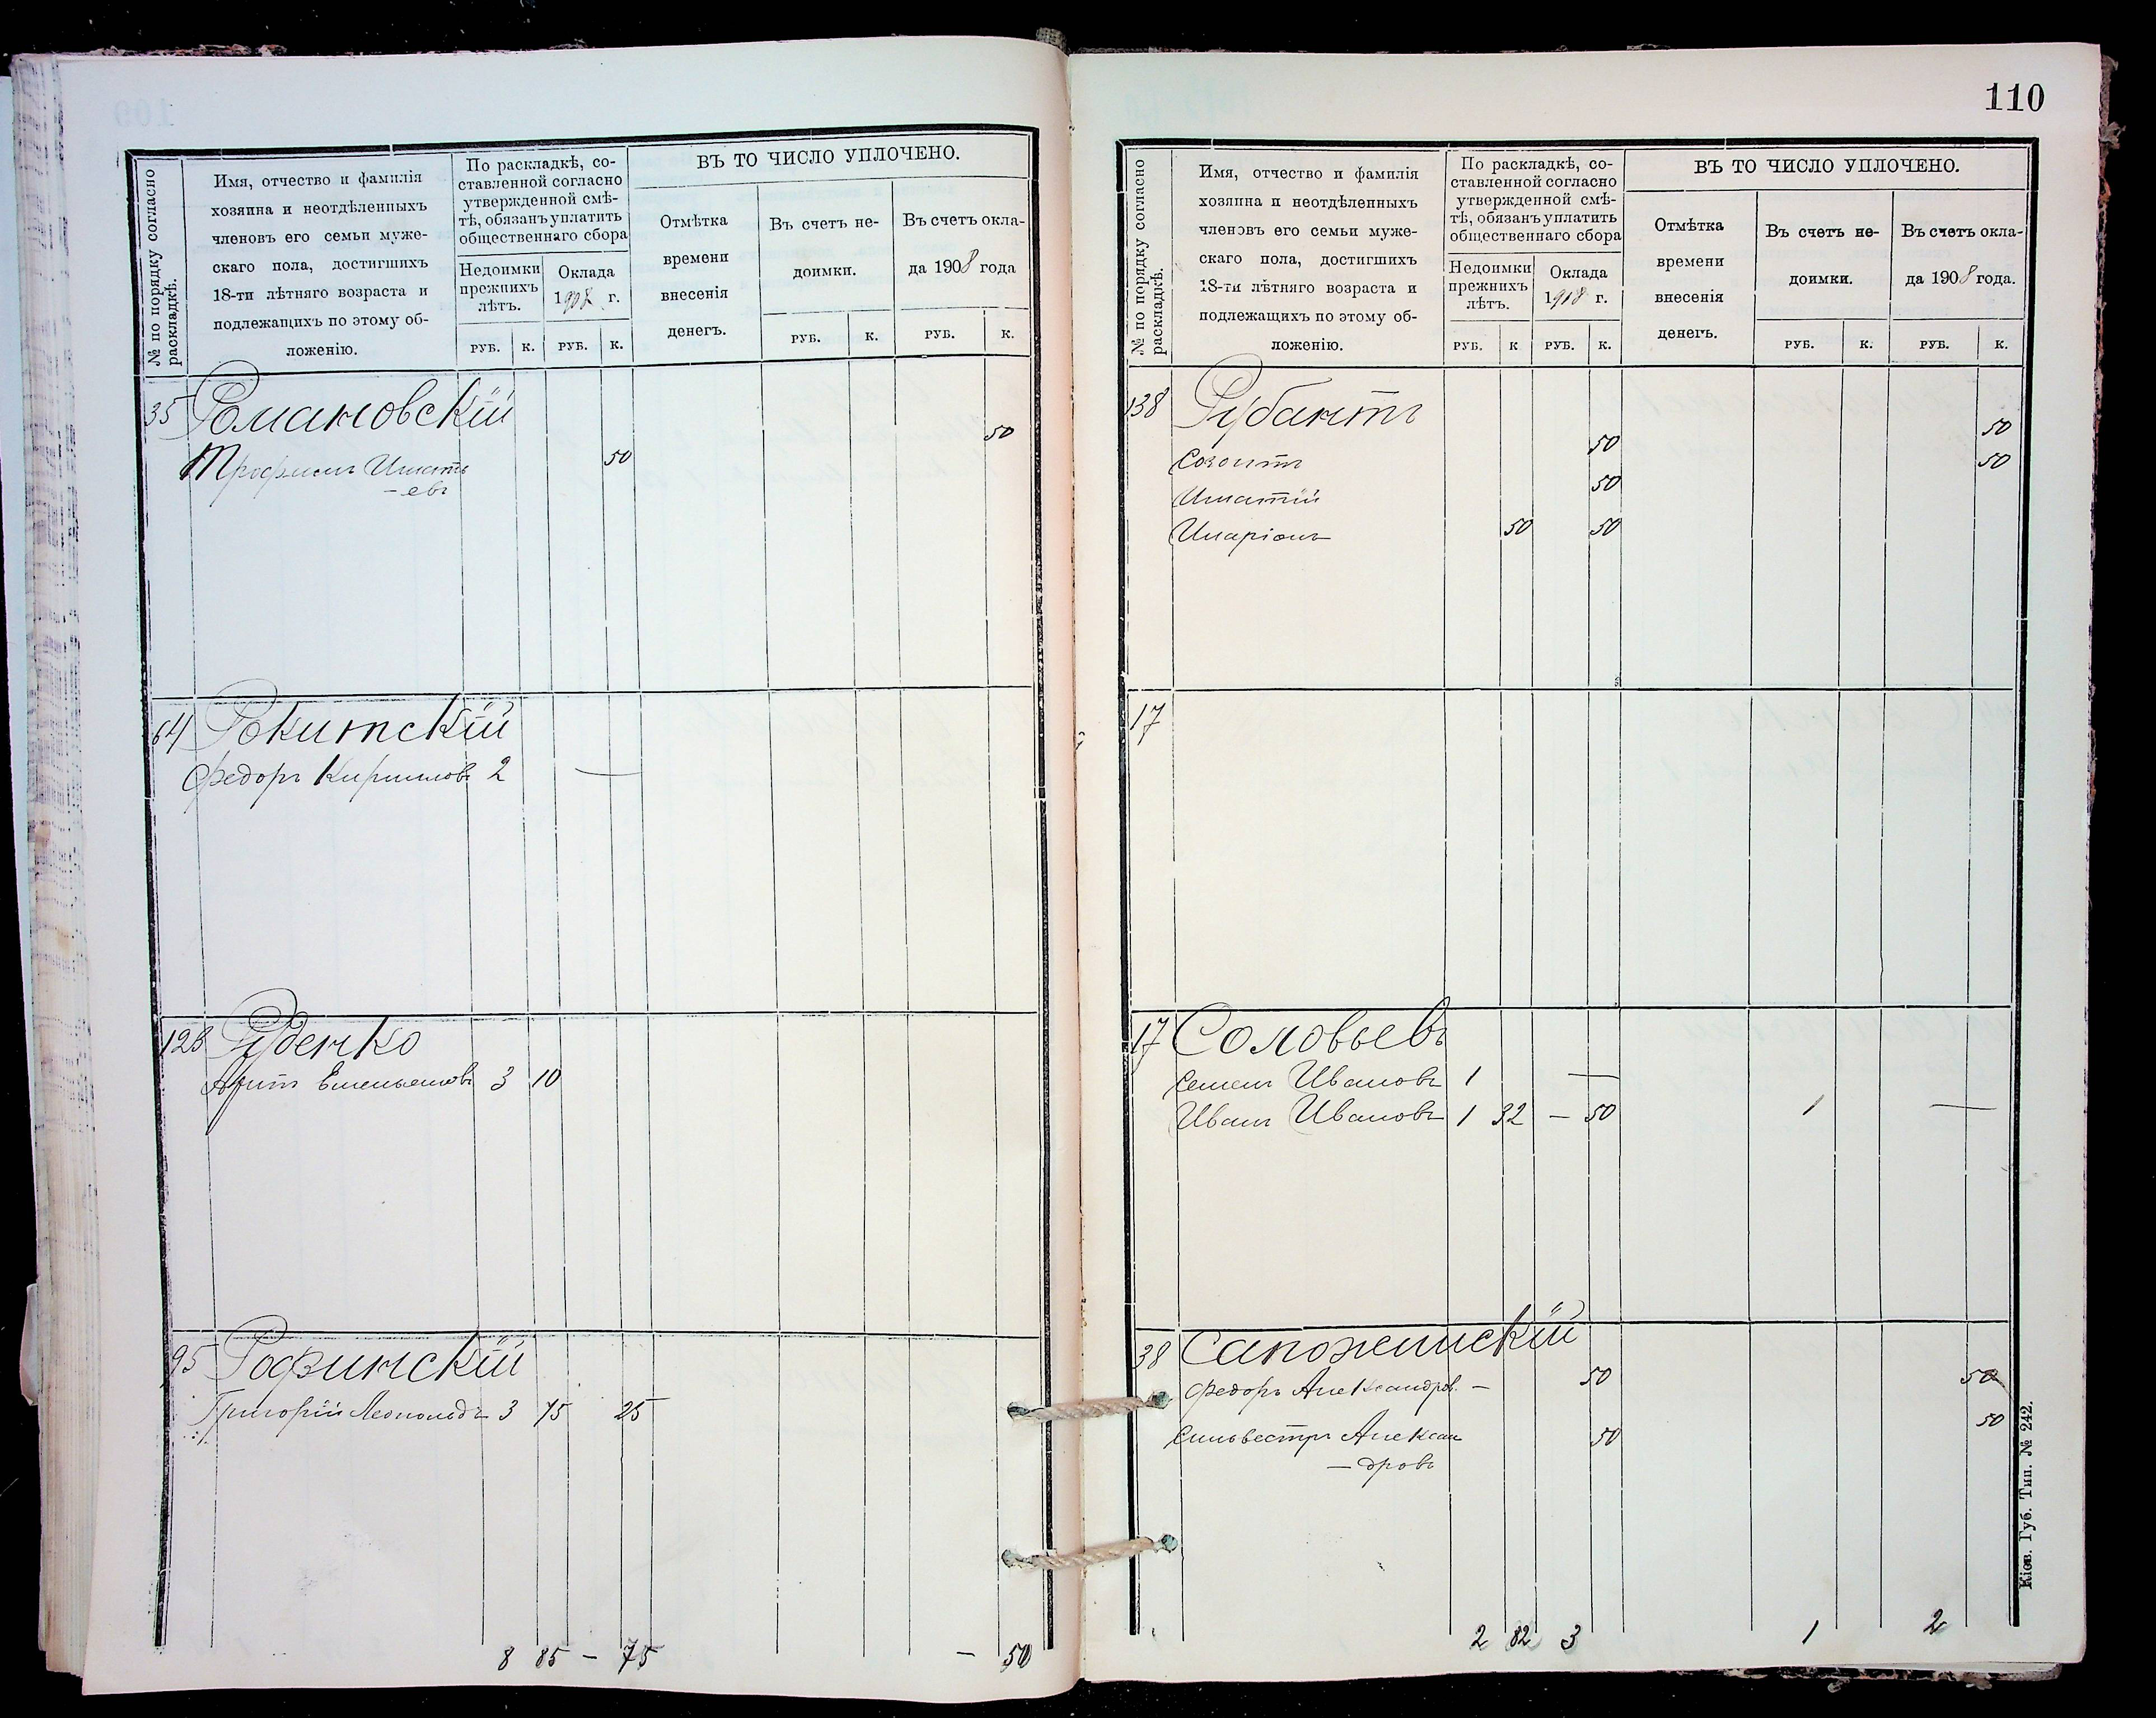 № по порядку согласно
раскладкѣ.
Имя, отчество и фамилія
хозяина и неотдѣленныхъ
членовъ его семьи муже-
скаго пола, достигшихъ
18-ти лѣтняго возраста и
подлежащихъ по этому об-
ложенію.
По раскладкѣ, со-
ставленной согласно
утвержденной смѣ-
тѣ, обязанъ уплатить
общественнаго сбора
Недоимки
прежнихъ
лѣтъ.
Оклада
1908 г.
РУБ. К. РУБ. К.
ВЪ ТО ЧИСЛО УПЛОЧЕНО.
Отмѣтка
времени
внесенія
денегъ.
Въ счетъ не-
доимки.
РУБ. К.
Въ счетъ окла-
да 1908 года
РУБ. К.
35 Романовскій 50
Трофимъ Игнать 50
-евъ
64 Рокитскій
Федоръ Кирилловъ 2 —
128 Руденко
Емельяновъ 3 10
95 Рафинскій
Григорій Леопольд 3 75 25
8 85 - 75 - 50
110
№ по порядку согласно
раскладкѣ.
Имя, отчество и фамилія
хозяина и неотдѣленныхъ
членовъ его семьи муже-
скаго пола, достигшихъ
18-ти лѣтняго возраста и
подлежащихъ по этому об-
ложенію.
По раскладкѣ, со-
ставленной согласно
утвержденной смѣ-
тѣ, обязанъ уплатить
общественнаго сбора
Недоимки
прежнихъ
лѣтъ.
Оклада
1908 г.
РУБ. К РУБ. К.
ВЪ ТО ЧИСЛО УПЛОЧЕНО.
Отмѣтка
времени
внесенія
денегъ.
Въ счетъ не-
доимки.
РУБ. К.
Въ счетъ окла-
да 1908 года.
РУБ. К.
138 Рубантъ 50
Созонтъ 50 50
Игнатій 50
Иларіонъ 50 50
17
17 Соловьевъ
Семенъ Ивановъ 1 —
Иванъ Ивановъ 1 32 - 50 1 —
38 Сапожинскій
Федоръ Александров. - 50 50
Сильвестръ Алексан 50 50
-дровъ
2 82 3 1 2
Кіев. Губ. Тип. № 242.